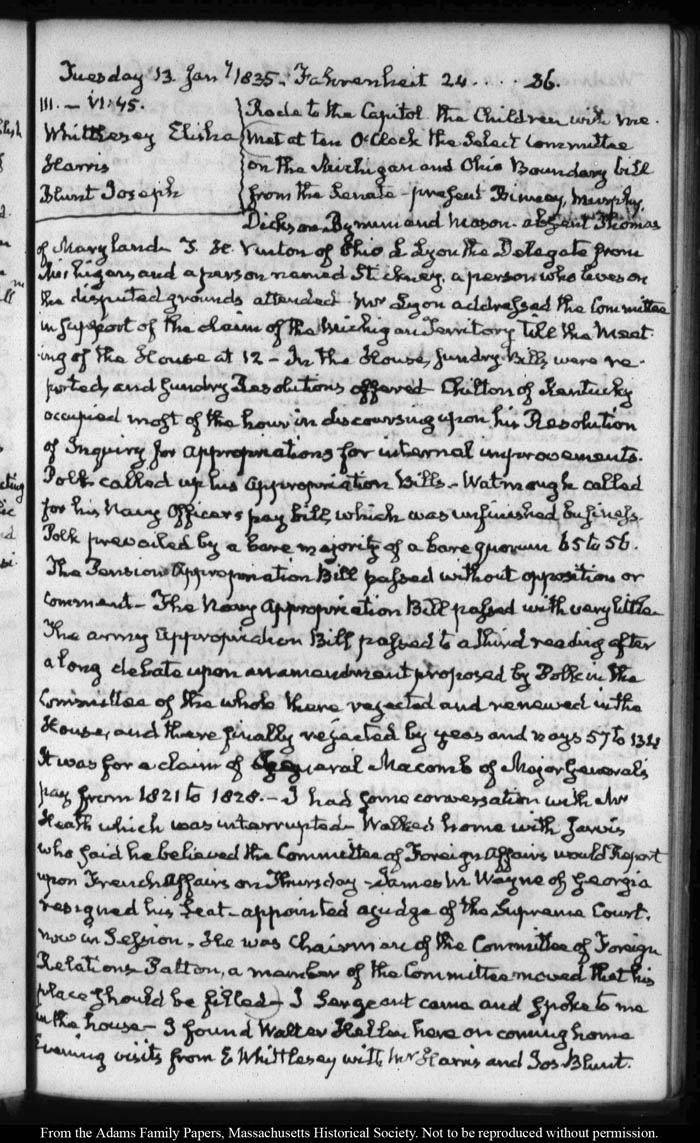 Tuesday 13. Jany 1835. Fahrenheit 24 .... 36.
III. – VI:45.
Whittlesey Elisha
Harris
Blunt Joseph
Rode to the Capitol. the Children with me.
Met at ten O'Clock the Select Committee
on the Michigan and Ohio Boundary bill
from the Senate – present Binney, Murphy,
Dickson, Bynum and Mason. absent Thomas
of Maryland. S. F. Vinton of Ohio L Lyon the Delegate from
Michigan, and a person named Stickney, a person who lives on
the disputed grounds attended. Mr Lyon addressed the Committee
in support of the claim of the Michigan Territory till the meet-
ing of the House at 12 – In the House, sundry Bills were re-
ported, and sundry Resolutions offered – Chilton of Kentucky
occupied most of the hour in discoursing upon his Resolution
of Inquiry for appropriations for internal improvements.
Polk called up his appropriation Bills. – Watmough called
for his Navy Officers pay bill, which was unfinished business.
Polk prevailed by a bare majority of a bare quorum 65 to 56.
The Pension Appropriation Bill passed without opposition or
comment – The Navy Appropriation Bill passed with very little
The army appropriation Bill passed to a third reading after
a long debate upon an amendment proposed by Polk in the
Committee of the whole there rejected and renewed in the
House, and there finally rejected by yeas and nays 57 to
It was for a claim of General Macomb of Major General's
pay from 1821 to 1828. – I had some conversation with Mr
Heath which was interrupted – Walked home with Jarvis
who said he believed the Committee of Foreign Affairs would Report
upon French Affairs on Thursday – James M. Wayne of Georgia
resigned his Seat – appointed a judge of the Supreme Court,
now in Session. He was Chairman of the Committee of Foreign
Relations. Patton, a member of the Committee moved that his
place should be filled – J Sergeant came and spoke to me
in the house – I found Walter Hellen here on coming home
Evening visits from E Whittlesey with Mr Harris and Jos Blunt.
From the Adams Family Papers, Massachusetts Historical Society. Not to be reproduced without permission.